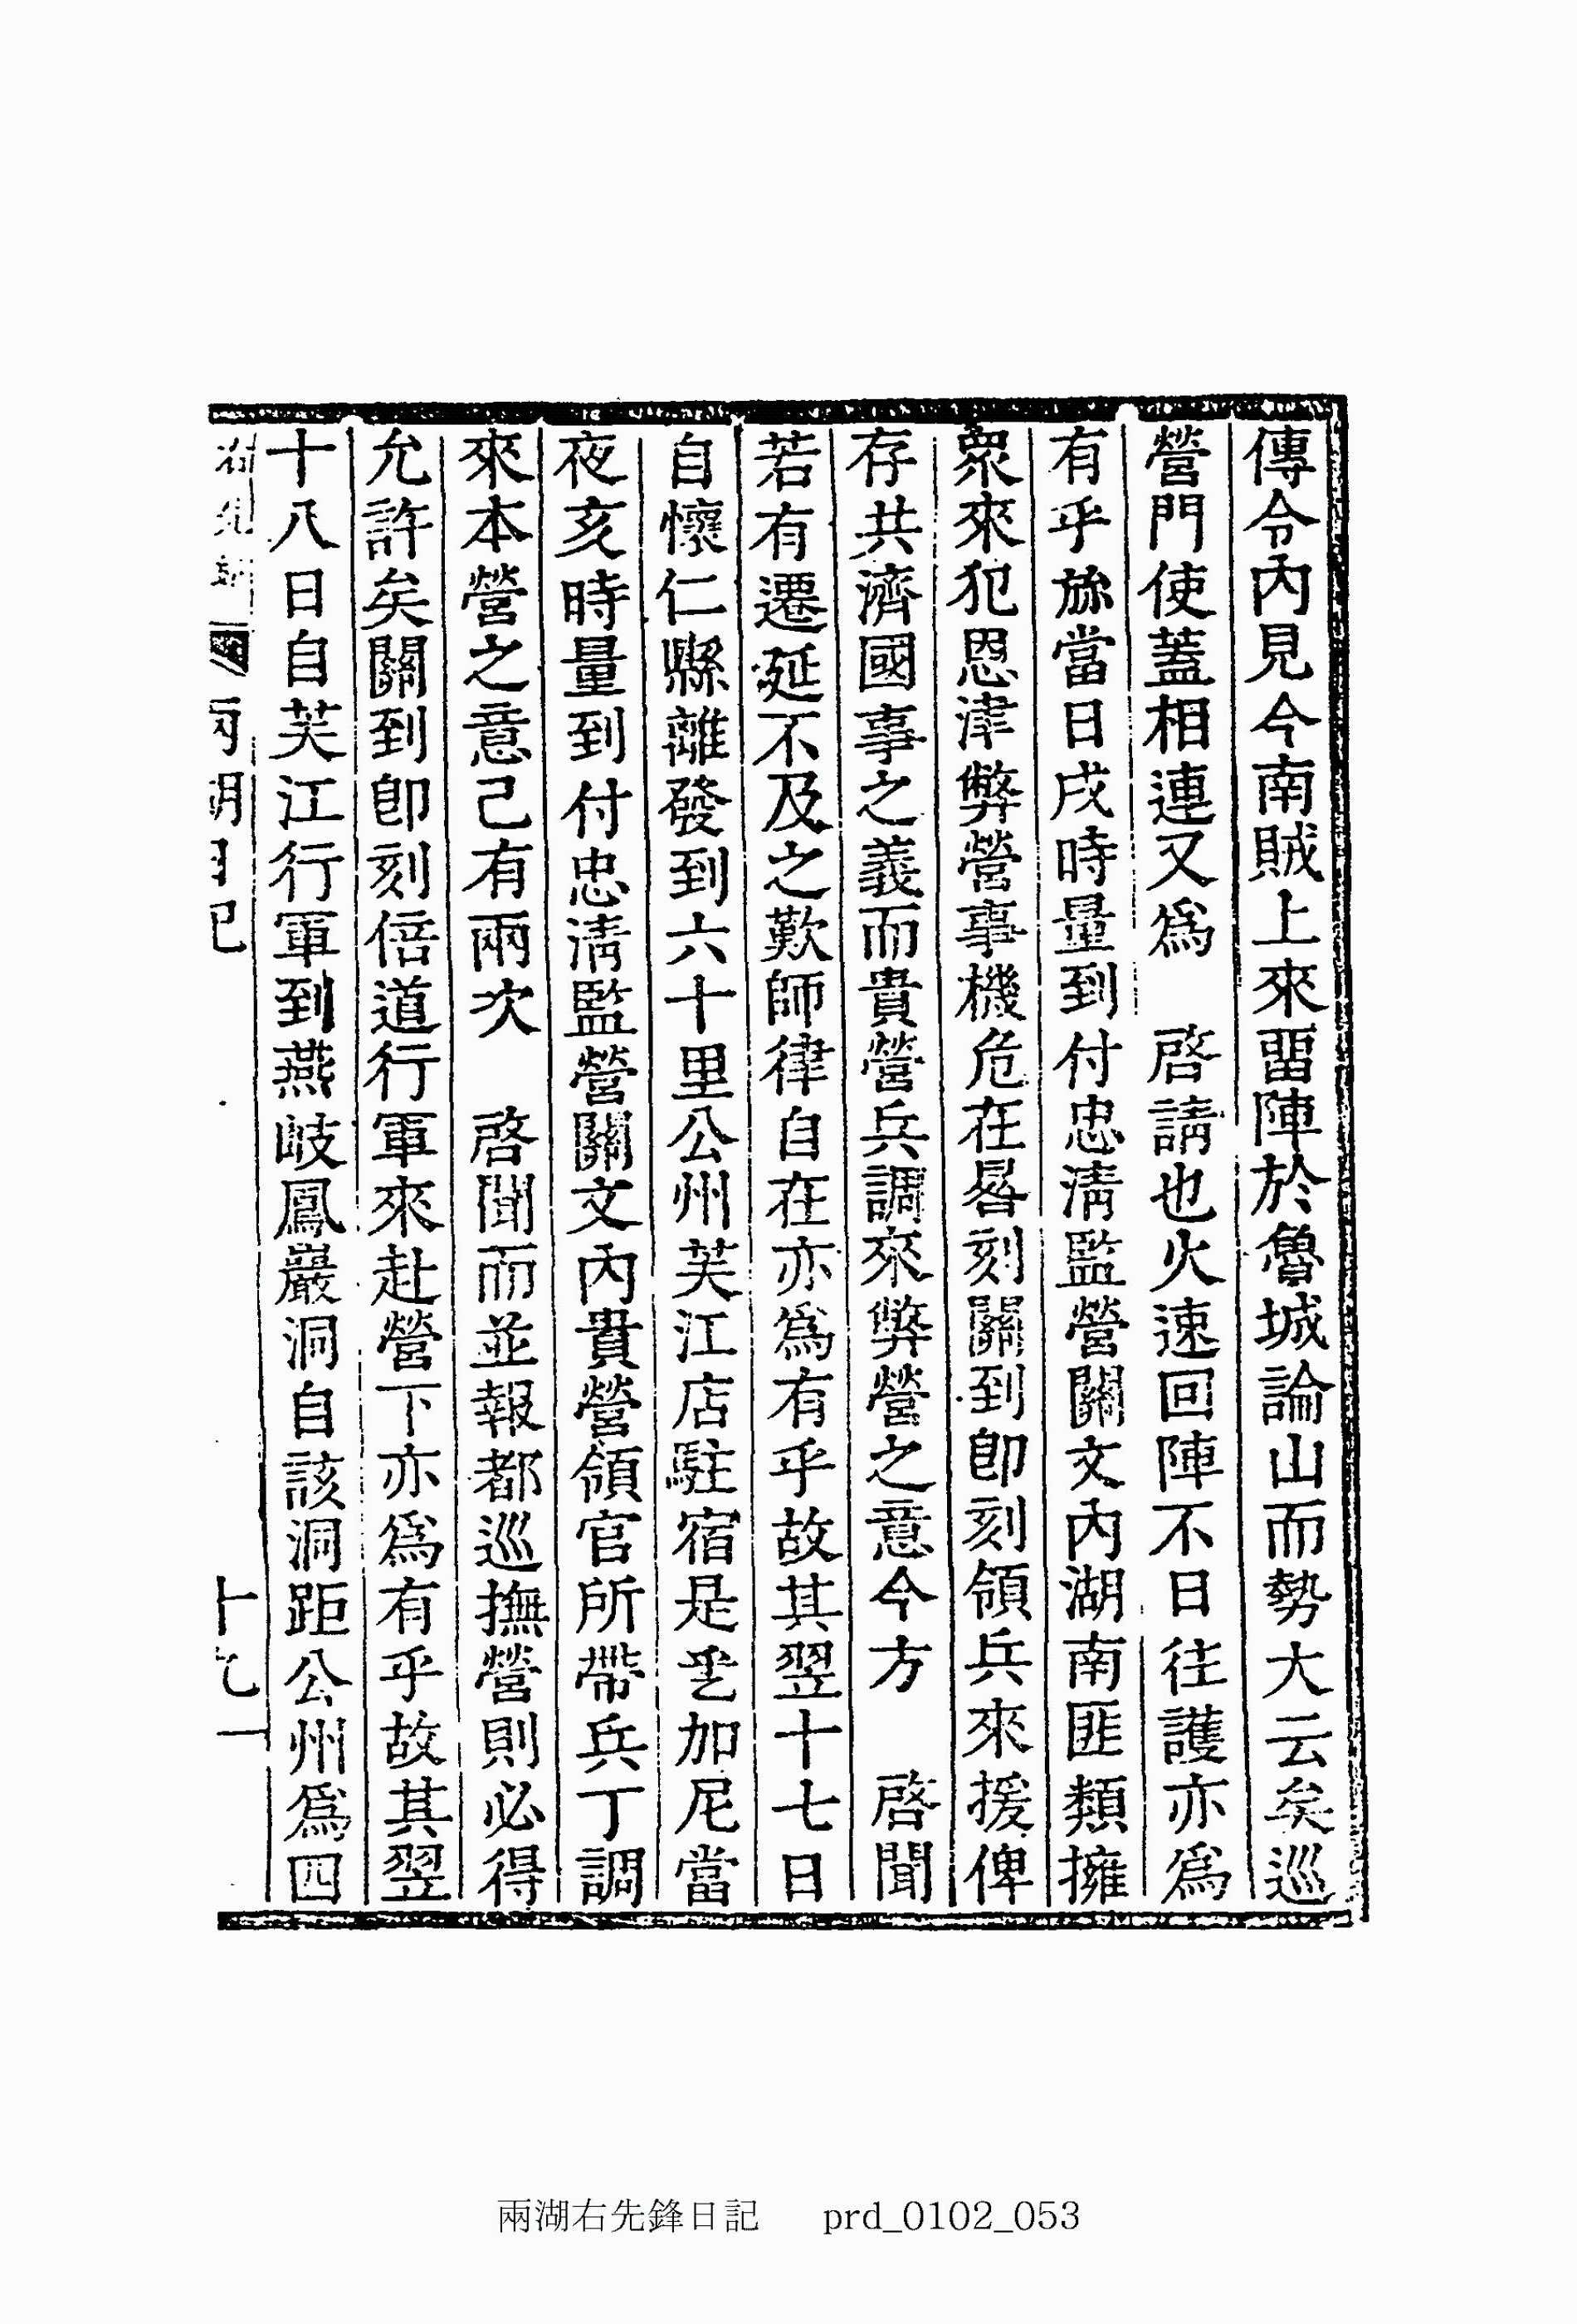 傳令內見今南賊上來畱陣於魯城論山而勢大云矣巡
營門使蓋相連又爲　啓請也火速回陣不日往護亦爲
有乎旀當日戌時量到付忠淸監營關文內湖南匪類擁
衆來犯恩津弊營事機危在晷刻關到卽刻領兵來援俾
存共濟國事之義而貴營兵調來弊營之意今方　啓聞
若有遷延不及之歎師律自在亦爲有乎故其翌十七日
自懷仁縣離發到六十里公州芙江店駐宿是乎加尼當
夜亥時量到付忠淸監營關文內貴營領官所帶兵丁調
來本營之意己有兩次　啓聞而並報都巡撫營則必得
允許矣關到卽刻倍道行軍來赴營下亦爲有乎故其翌
十八日自芙江行軍到燕岐鳳巖洞自該洞距公州爲四
右先鋒　兩湖日記　十九一
兩湖右先鋒日記　prd_0102_053